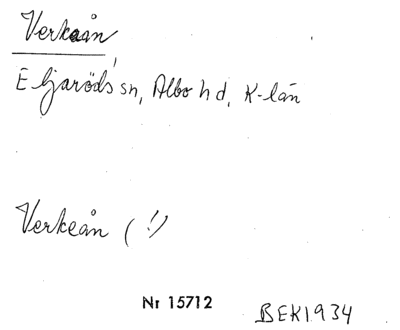 Verkaån
E ljaröds sn, Albo hd, K-län
Verkeån (!)
Nr 15712 BEK1934